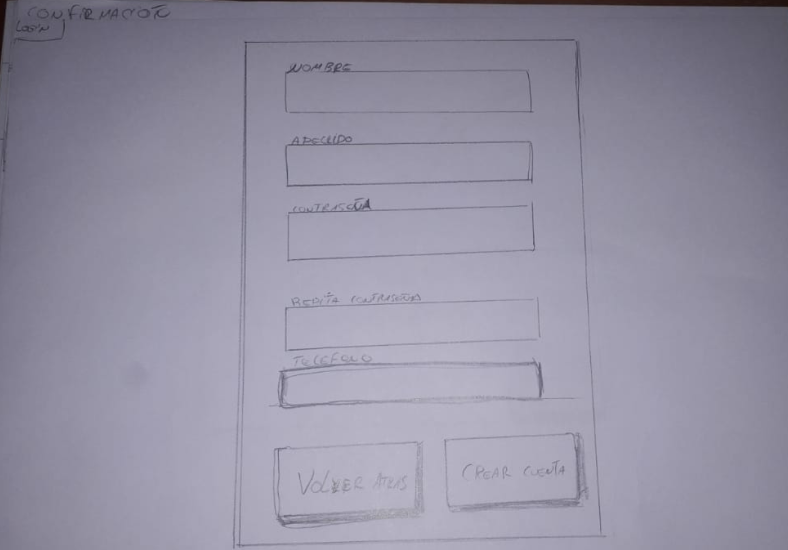 CONFIRMACION
LOGIN
NOMBRE
APELLIDO
CONTRASEÑA
REPITA CONTRASEÑA
TELEFOLO
VOLVER ATRAS
CREAR CUENTA